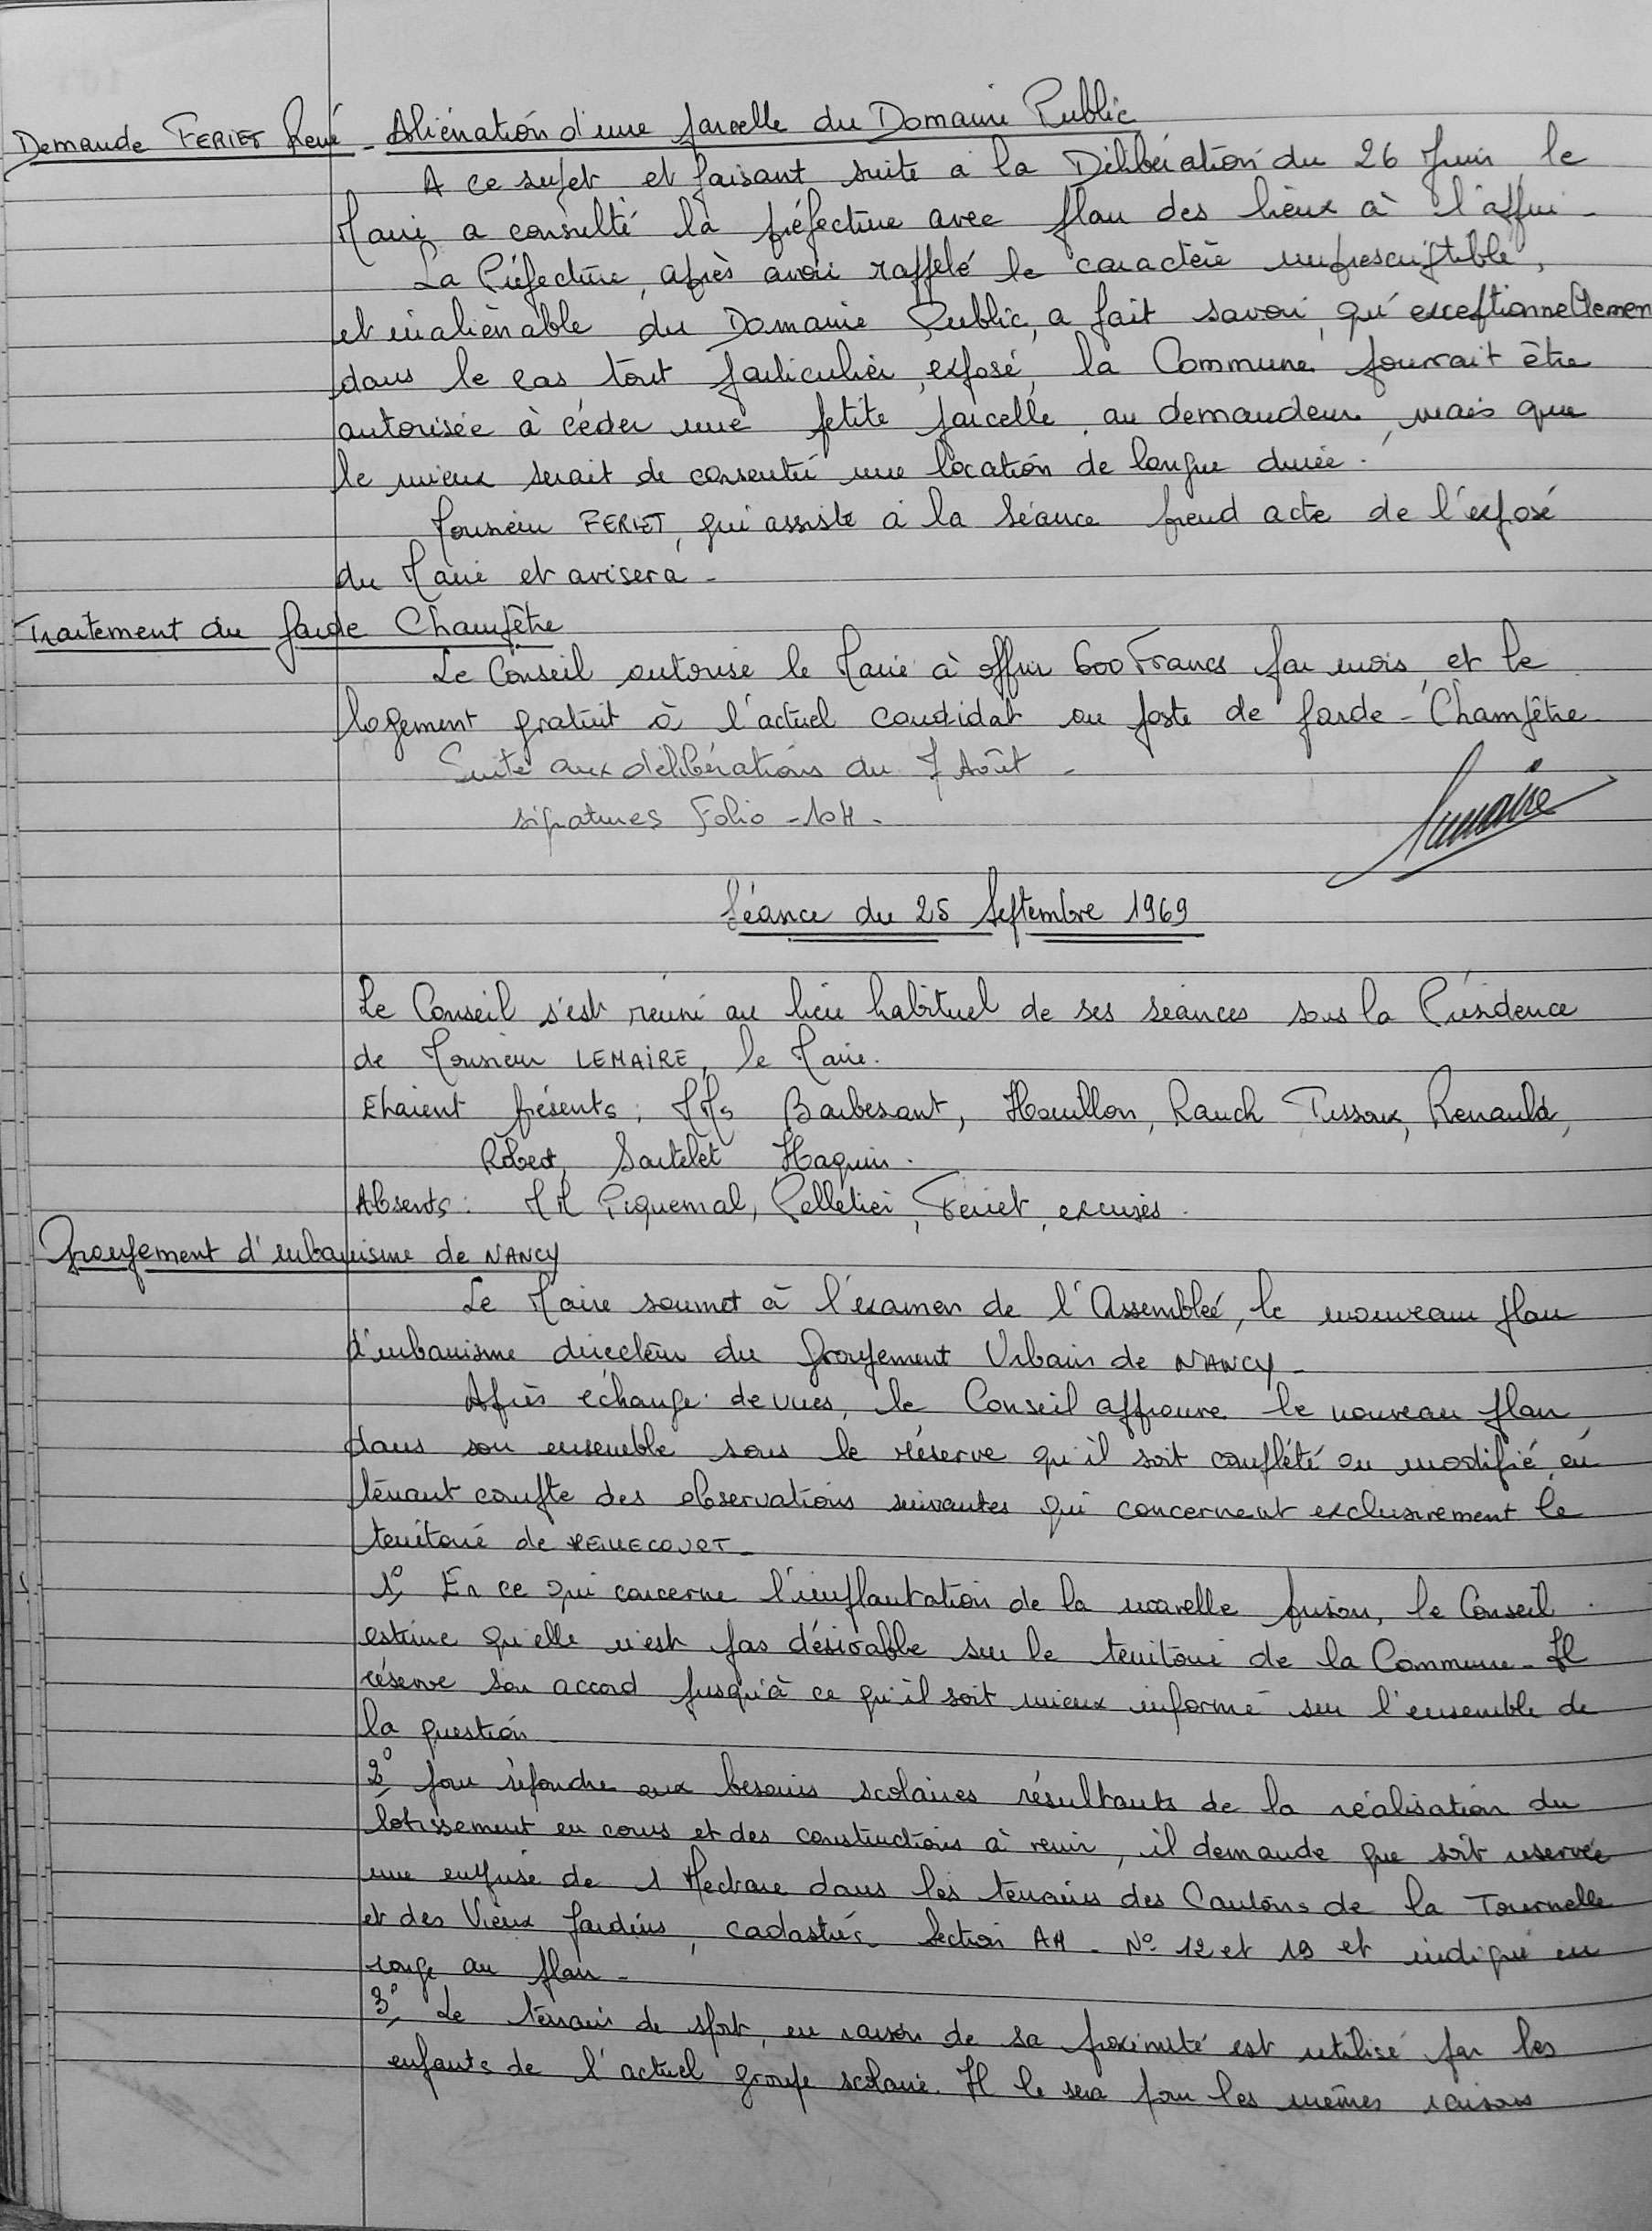 Demande FERIET René - Aliénation d'une parcelle du Domaine Public
A ce sujet et faisant suite à la Délibération du 26 Juin, le
Maire a consulté la préfecture avec plan des lieux à l'appui -
La Préfecture, après avoir rappelé le caractère imprescriptible,
et inaliénable du Domaine Public, a fait savoir, qu'exceptionnellement
dans le cas tout particulier exposé, la Commune pourrait être
autorisée à céder une petite parcelle au demandeur, mais que
le mieux serait de consentir une location de longue durée.
Monsieur FERIET, qui assiste à la Séance prend acte de l'exposé
du Maire et avisera -
Traitement du Garde Champêtre
Le Conseil autorise le Maire à offrir 600 Francs par mois, et le
logement gratuit à l'actuel candidat au poste de Garde-Champêtre
Suite aux délibérations du 7 Août -
signatures Folio -104-
Lemaire
Séance du 25 Septembre 1969
Le Conseil s'est réuni au lieu habituel de ses séances sous la Présidence
de Monsieur LEMAIRE, le Maire.
Etaient présents : MMs Barbesant, Houillon, Rauch Tussoux, Renauld,
Robert, Sartelet Haquin.
Absents : MM Piquemal, Pelletier, Feriet, excusés.
Groupement d'urbanisme de NANCY
Le Maire soumet à l'examen de l'Assemblée, le nouveau plan
d'urbanisme directeur du Groupement Urbain de NANCY -
Après échange de vues, le Conseil approuve le nouveau plan
dans son ensemble sous le réserve qu'il soit complété ou modifié en
tenant compte des observations suivantes qui concernent exclusivement le
territoire de REMECOURT -
1° En ce qui concerne l'implantation de la nouvelle prison, le Conseil
estime qu'elle n'est pas désirable sur le territoire de la Commune - Il
réserve son accord jusqu'à ce qu'il soit mieux informé sur l'ensemble de
la question
2° pour répondre aux besoins scolaires résultants de la réalisation du
lotissement en cours et des constructions à venir, il demande que soit réservée
une emprise de 1 Hectare dans les terrains des Cantons de la Tournelle
et des Vieux Jardins, cadastrés Section AH - N° 12 et 19 et indiqué en
rouge au plan -
3° Le terrain de sport, en raison de sa proximité est utilisé par les
enfants de l'actuel groupe scolaire. Il le sera pour les mêmes raisons